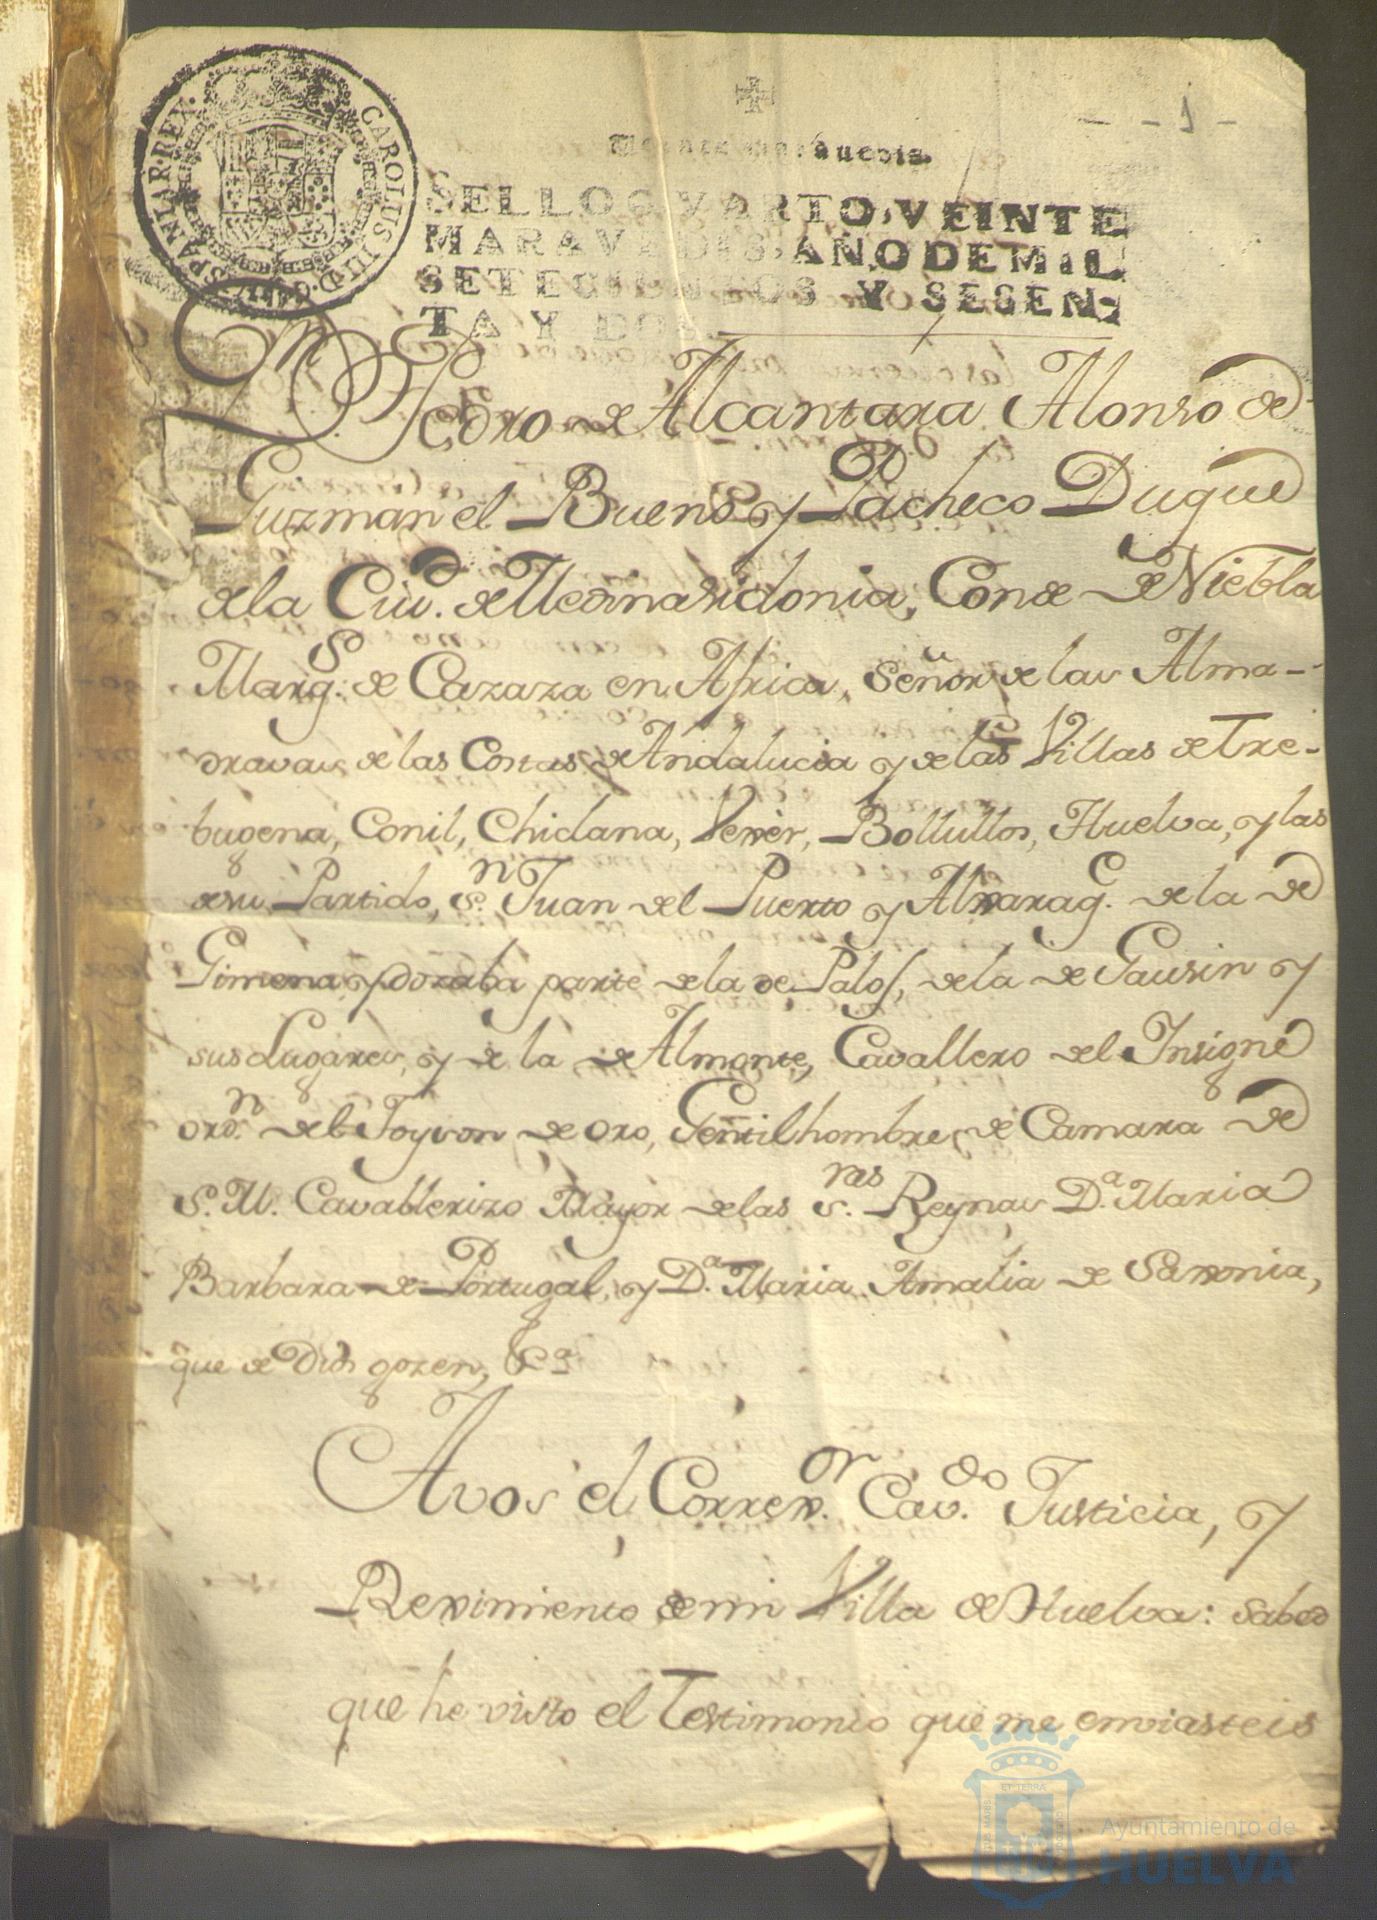 CAROLUS III D. G. HISPANIAR. REX.
- - 1 -
Veinte marauedis.
SELLO QVARTO, VEINTE
MARAVEDIS, AÑO DE MIL
SETECIENTOS Y SESEN-
TA Y DOS.
Pedro de Alcantara Alonso de
Guzman el Bueno y Pacheco Duque
de la Ciud. de Medinasidonia, Conde de Niebla
Marqs. de Cazaza en Africa, Señor de las Alma-
dravas de las Costas de Andalucia y de las Villas de Tre-
bugena, Conil, Chiclana, Vexèr, Bollullos, Huelva, y las
de su Partido, sn. Juan del Puerto y Alxaraq. de la de
Gimena y dozaba parte de la de Palos, de la de Gausin y
sus Lugares, y de la de Almonte, Cavallero del Insigne
ordn. del Toyson de oro, Gentilhombre de Camara de
S. M. Cavallerizo Mayor de las sras. Reynas Da. Maria
Barbara de Portugal, y Da. Maria Amalia de Saxonia,
que de Dios gozen, &a
A vos el Correxor. Cavdo. Justicia, y
Reximiento de mi Villa de Huelva: sabed
que he visto el Testimonio que me enviasteis
ET TERRÆ
Ayuntamiento de
HUELVA